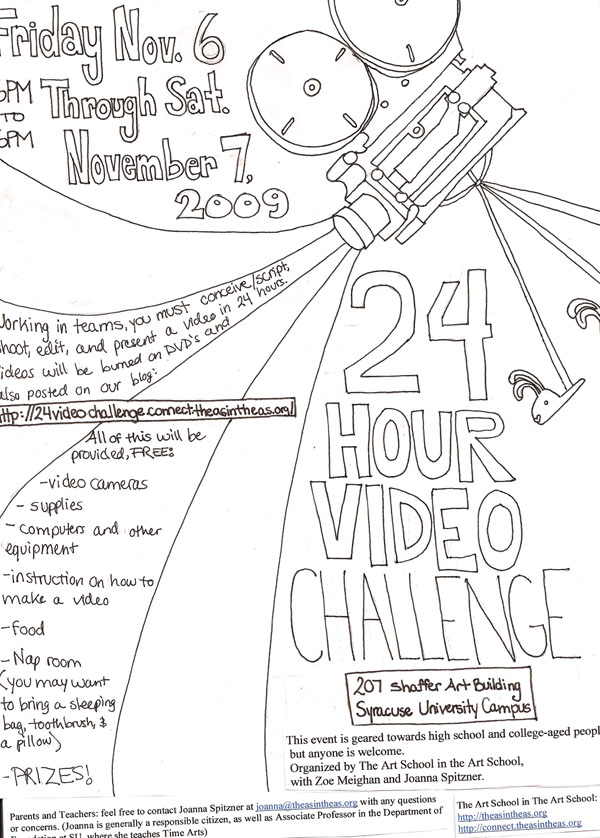 Friday Nov. 6
Through Sat.
November 7,
2009
6PM
TO
6PM
Working in teams, you must conceive/script,
shoot, edit, and present a video in 24 hours.
videos will be burned on DVD's and
also posted on our blog:
http://24videochallenge.connect.theasintheas.org/
All of this will be
provided, FREE:
-video cameras
- supplies
- computers and other
equipment
-instruction on how to
make a video
-food
-Nap room
(you may want
to bring a sleeping
bag, toothbrush, &
a pillow)
-PRIZES!
24
HOUR
VIDEO
CHALLENGE
207 Shaffer Art Building
Syracuse University Campus
This event is geared towards high school and college-aged peopl
but anyone is welcome.
Organized by The Art School in the Art School,
with Zoe Meighan and Joanna Spitzner.
Parents and Teachers: feel free to contact Joanna Spitzner at joanna@theasintheas.org with any questions
or concerns. (Joanna is generally a responsible citizen, as well as Associate Professor in the Department of
Foundation at SU, where she teaches Time Arts)
The Art School in The Art School:
http://theasintheas.org
http://connect.theasintheas.org